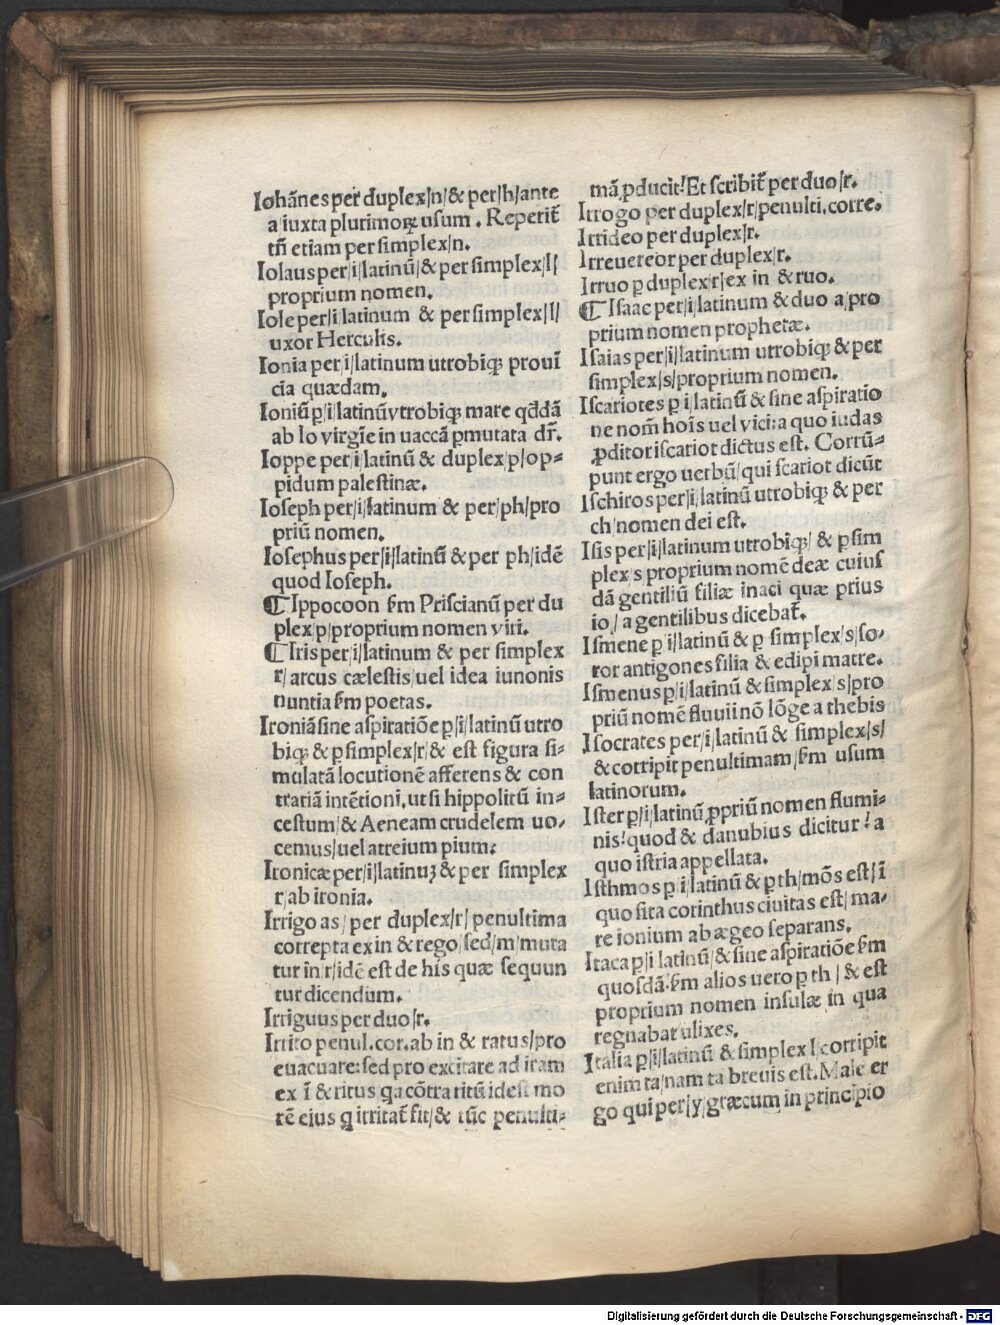 Iohãnes per duplex/n/& per/h/ante
a/iuxta plurimoꝝ usum. Reperit̃
tñ etiam per simplex/n.
Iolaus per/i/latinũ/& per simplex/l/
proprium nomen.
Iole per/i/latinum & per simplex/l/
uxor Herculis.
Ionia per/i/latinum utrobiq; prouĩ
cia quædam.
Ioniũ ꝑ/i/latinũ vtrobiq; mare qđdã
ab Io virgĩe in uaccã ꝑmutata dr̃.
Ioppe per/i/latinũ & duplex/p/op-
pidum palestinæ.
Ioseph per/i/latinum & per/ph/pro
priũ nomen.
Iosephus per/i/latinũ & per ph/idẽ
quod Ioseph.
¶ Ippocoon ẜm Priscianũ per du
plex/p/proprium nomen viri.
¶ Iris per/i/latinum & per simplex
r/ arcus cælestis/uel idea iunonis
nuntia ẜm poetas.
Ironiã sine aspiratiõe ꝑ/i/latinũ utro
biq; & ꝑ simplex/r/& est figura si-
mulatã locutionẽ afferens & con
trariã intẽtioni, ut si hippolitũ in-
cestum/& Aeneam crudelem uo-
cemus/uel atreium pium.
Ironicæ per/i/latinuꝫ & per simplex
r/ab ironia.
Irrigo as/ per duplex/r/ penultima
correpta ex in & rego/sed/m/muta
tur in/r/idẽ est de his quæ sequun
tur dicendum.
Irriguus per duo/r.
Irrito penul.cor.ab in & ratus/pro
euacuare: sed pro excitare ad iram
ex ĩ & ritus q̃ a cõtra ritũ idest mo
rẽ eius q irritat̃ fit/& tũc penulti-
mã ꝓducit! Et scribit̃ per duo/r.
Irrogo per duplex/r/penulti.corre.
Irrideo per duplex/r.
Irreuereor per duplex/r.
Irruo ꝑ duplex/r/ex in & ruo.
¶ Isaac per/i/latinum & duo a/pro
prium nomen prophetæ.
Isaias per/i/latinum utrobiq; & per
simplex/s/proprium nomen.
Iscariotes ꝑ i/latinũ & sine aspiratio
ne nom̃ hoĩs uel vici: a quo iudas
ꝓditor iscariot dictus est. Corrũ-
punt ergo uerbũ/qui scariot dicũt
Ischiros per/i/latinũ utrobiq; & per
ch/nomen dei est.
Isis per/i/latinum utrobiq;/ & ꝑ sim
plex/s/proprium nomẽ deæ cuius
dã gentiliũ filiæ inaci quæ prius
io/ a gentilibus dicebat̃.
Ismene ꝑ i/latinũ & ꝑ simplex/s/so-
ror antigones filia & edipi matre.
Ismenus ꝑ/i/latinũ & simplex/s/pro
priũ nomẽ fluuii nõ lõge a thebis
Isocrates per/i/latinũ & simplex/s/
& corripit penultimam/ẜm usum
latinorum.
Ister ꝑ/i/latinũ ꝓpriũ nomen flumi-
nis! quod & danubius dicitur! a
quo istria appellata.
Isthmos ꝑ/i/latinũ & ꝑ th/mõs est/ĩ
quo sita corinthus ciuitas est/ ma-
re ionium ab ægeo separans.
Itaca ꝑ/i latinũ/& sine aspiratiõe ẜm
quosdã. ẜm alios uero ꝑ th/ & est
proprium nomen insulæ in qua
regnabat ulixes.
Italia ꝑ/i/latinũ & simplex l/corripit
enim ta/nam ta breuis est. Male er
go qui per/y/græcum in principio
Digitalisierung gefördert durch die Deutsche Forschungsgemeinschaft - DFG